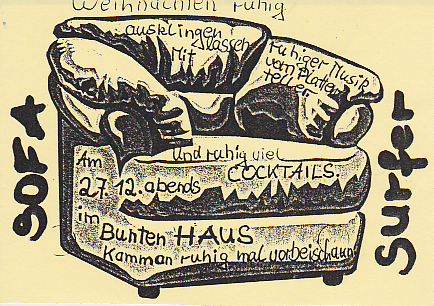 Weihnachten ruhig
ausklingen lassen
Mit
ruhiger Musik
vom Platten
teller
Und ruhig viel
COCKTAILS.
Am
27.12. abends
im
Bunten HAUS
Kamman ruhig mal vorbeischaun
SOFA
Surfer